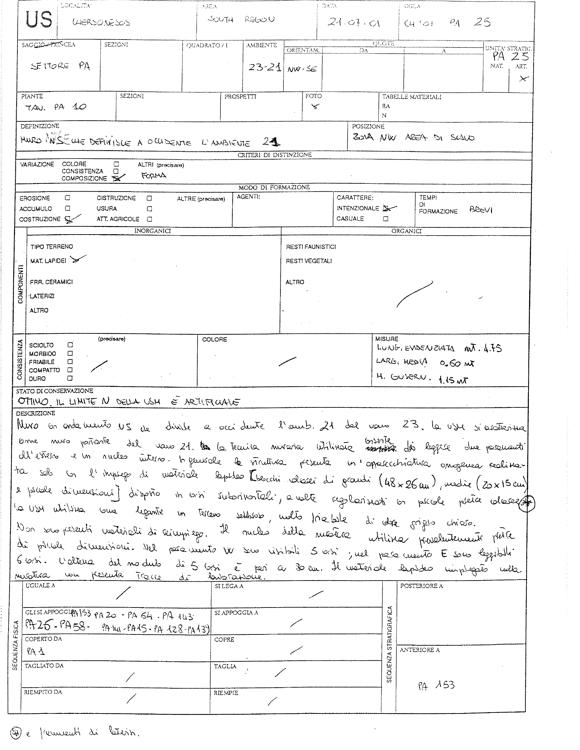 US
LOCALITÀ
CHERSONESOS
AREA
SOUTH REGION
DATA
21.07.01
SIGLA
CH '01 PA 25
SAGGIO/TRINCEA
SETTORE PA
SEZIONI
QUADRATO/I
AMBIENTE
23-21
ORIENTAM.
NW-SE
QUOTE
DA
A
UNITÀ STRATIG.
PA 25
NAT. ART.
PIANTE
TAV. PA 10
SEZIONI
PROSPETTI
FOTO
X
TABELLE MATERIALI
RA
N
DEFINIZIONE
MURO CHE DEFINISCE A OCCIDENTE L'AMBIENTE 21
POSIZIONE
ZONA NW AREA DI SCAVO
CRITERI DI DISTINZIONE
VARIAZIONE COLORE
CONSISTENZA
COMPOSIZIONE
ALTRI (precisare)
FORMA
MODO DI FORMAZIONE
EROSIONE
ACCUMULO
COSTRUZIONE
DISTRUZIONE
USURA
ATT. AGRICOLE
ALTRE (precisare)
AGENTI:
CARATTERE:
INTENZIONALE
CASUALE
TEMPI
DI
FORMAZIONE
BREVI
COMPONENTI
INORGANICI
TIPO TERRENO
MAT. LAPIDEI
FRR. CERAMICI
LATERIZI
ALTRO
ORGANICI
RESTI FAUNISTICI
RESTI VEGETALI
ALTRO
CONSISTENZA
(precisare)
SCIOLTO
MORBIDO
FRIABILE
COMPATTO
DURO
COLORE
MISURE
LUNG. EVIDENZIATA mt. 4.75
LARG. MEDIA 0.60 mt
H. CONSERV. 1.15 mt
STATO DI CONSERVAZIONE
OTTIMO. IL LIMITE N DELLA USM È ARTIFICIALE
DESCRIZIONE
Muro con andamento che divide a occidente l'amb. 21 dal vano 23. la USM si caratterizza
come muro portante del vano 21. la tecnica muraria utilizzata consente di leggere due paramenti
all'esterno e un nucleo interno. In generale la struttura presenta un'apparecchiatura omogenea realizza-
ta solo con l'impiego di materiale lapideo [blocchi di grandi (48x26 cm), medie (20x15 cm)
e piccole dimensioni] disposto in corsi suborizzontali, a volte regolarizzati con piccole pietre
la USM utilizza come legante un terreno sabbioso, molto friabile di colore grigio chiaro.
Non sono presenti materiali di reimpiego. Il nucleo della muratura utilizza prevalentemente pietre
di piccole dimensioni. Nel paramento W sono visibili 5 corsi; nel paramento E sono leggibili
6 corsi. L'altezza del modulo di 5 corsi è pari a 80 cm. Il materiale lapideo impiegato nella
muratura non presenta tracce di lavorazione.
SEQUENZA FISICA
UGUALE A
SI LEGA A
GLI SI APPOGGIA PA153 PA20 - PA 64 - PA 143
PA26 - PA58 - PA15 - PA 128 - PA137
SI APPOGGIA A
COPERTO DA
PA 1
COPRE
TAGLIATO DA
TAGLIA
RIEMPITO DA
RIEMPIE
SEQUENZA STRATIGRAFICA
POSTERIORE A
ANTERIORE A
PA 153
e frammenti di laterizi.